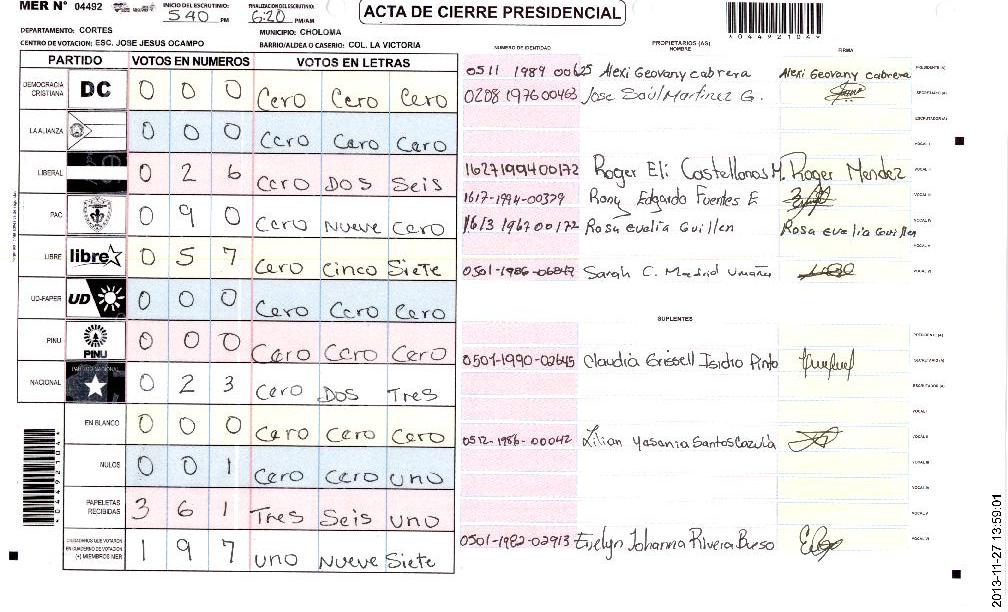 MER N° 04492
INICIO DEL ESCRUTINIO: 5 40 PM
FINALIZACION DEL ESCRUTINIO: 6:20 PM/AM
ACTA DE CIERRE PRESIDENCIAL
*04492104*
DEPARTAMENTO: CORTES
MUNICIPIO: CHOLOMA
CENTRO DE VOTACION: ESC. JOSE JESUS OCAMPO
BARRIO/ALDEA O CASERIO: COL. LA VICTORIA
PARTIDO VOTOS EN NUMEROS VOTOS EN LETRAS
DEMOCRACIA CRISTIANA DC 0 0 0 Cero Cero Cero
LA ALIANZA 0 0 0 Cero Cero Cero
LIBERAL 0 2 6 Cero Dos Seis
PAC 0 9 0 Cero Nueve Cero
LIBRE libre 0 5 7 Cero Cinco Siete
UD-FAPER UD 0 0 0 Cero Cero Cero
PINU PINU 0 0 0 Cero Cero Cero
NACIONAL PARTIDO NACIONAL 0 2 3 Cero Dos Tres
EN BLANCO 0 0 0 Cero Cero Cero
NULOS 0 0 1 Cero Cero uno
PAPELETAS RECIBIDAS 3 6 1 Tres Seis uno
CIUDADANOS QUE VOTARON EN CUADERNO DE VOTACION (+) MIEMBROS MER 1 9 7 uno Nueve Siete
*04492104*
NUMERO DE IDENTIDAD PROPIETARIOS (AS) NOMBRE FIRMA
0511 1989 00625 Alexi Geovany cabrera Alexi Geovany cabrera PRESIDENTE (A)
0208 1976 00463 Jose Saúl Martinez G. SECRETARIO (A)
ESCRUTADOR (A)
VOCAL I
1627199400172 Roger Eli Castellanos M. Roger Mendez VOCAL II
1617-1994-00379 Rony Edgardo Fuentes E VOCAL III
1613 1967 00172 Rosa evelia Guillen Rosa evelia Guillen VOCAL IV
VOCAL V
0501-1986-06847 Sarah C. Madrid Umaña VOCAL VI
SUPLENTES
PRESIDENTE (A)
0501-1990-02645 Claudia Grissell Isidro Pinto SECRETARIO (A)
ESCRUTADOR (A)
VOCAL I
0512-1986-00042 Lilian Yasania Santos Cazula VOCAL II
VOCAL III
VOCAL IV
VOCAL V
0501-1982-02913 Evelyn Johanna Rivera Bueso VOCAL VI
2013-11-27 13:59:01